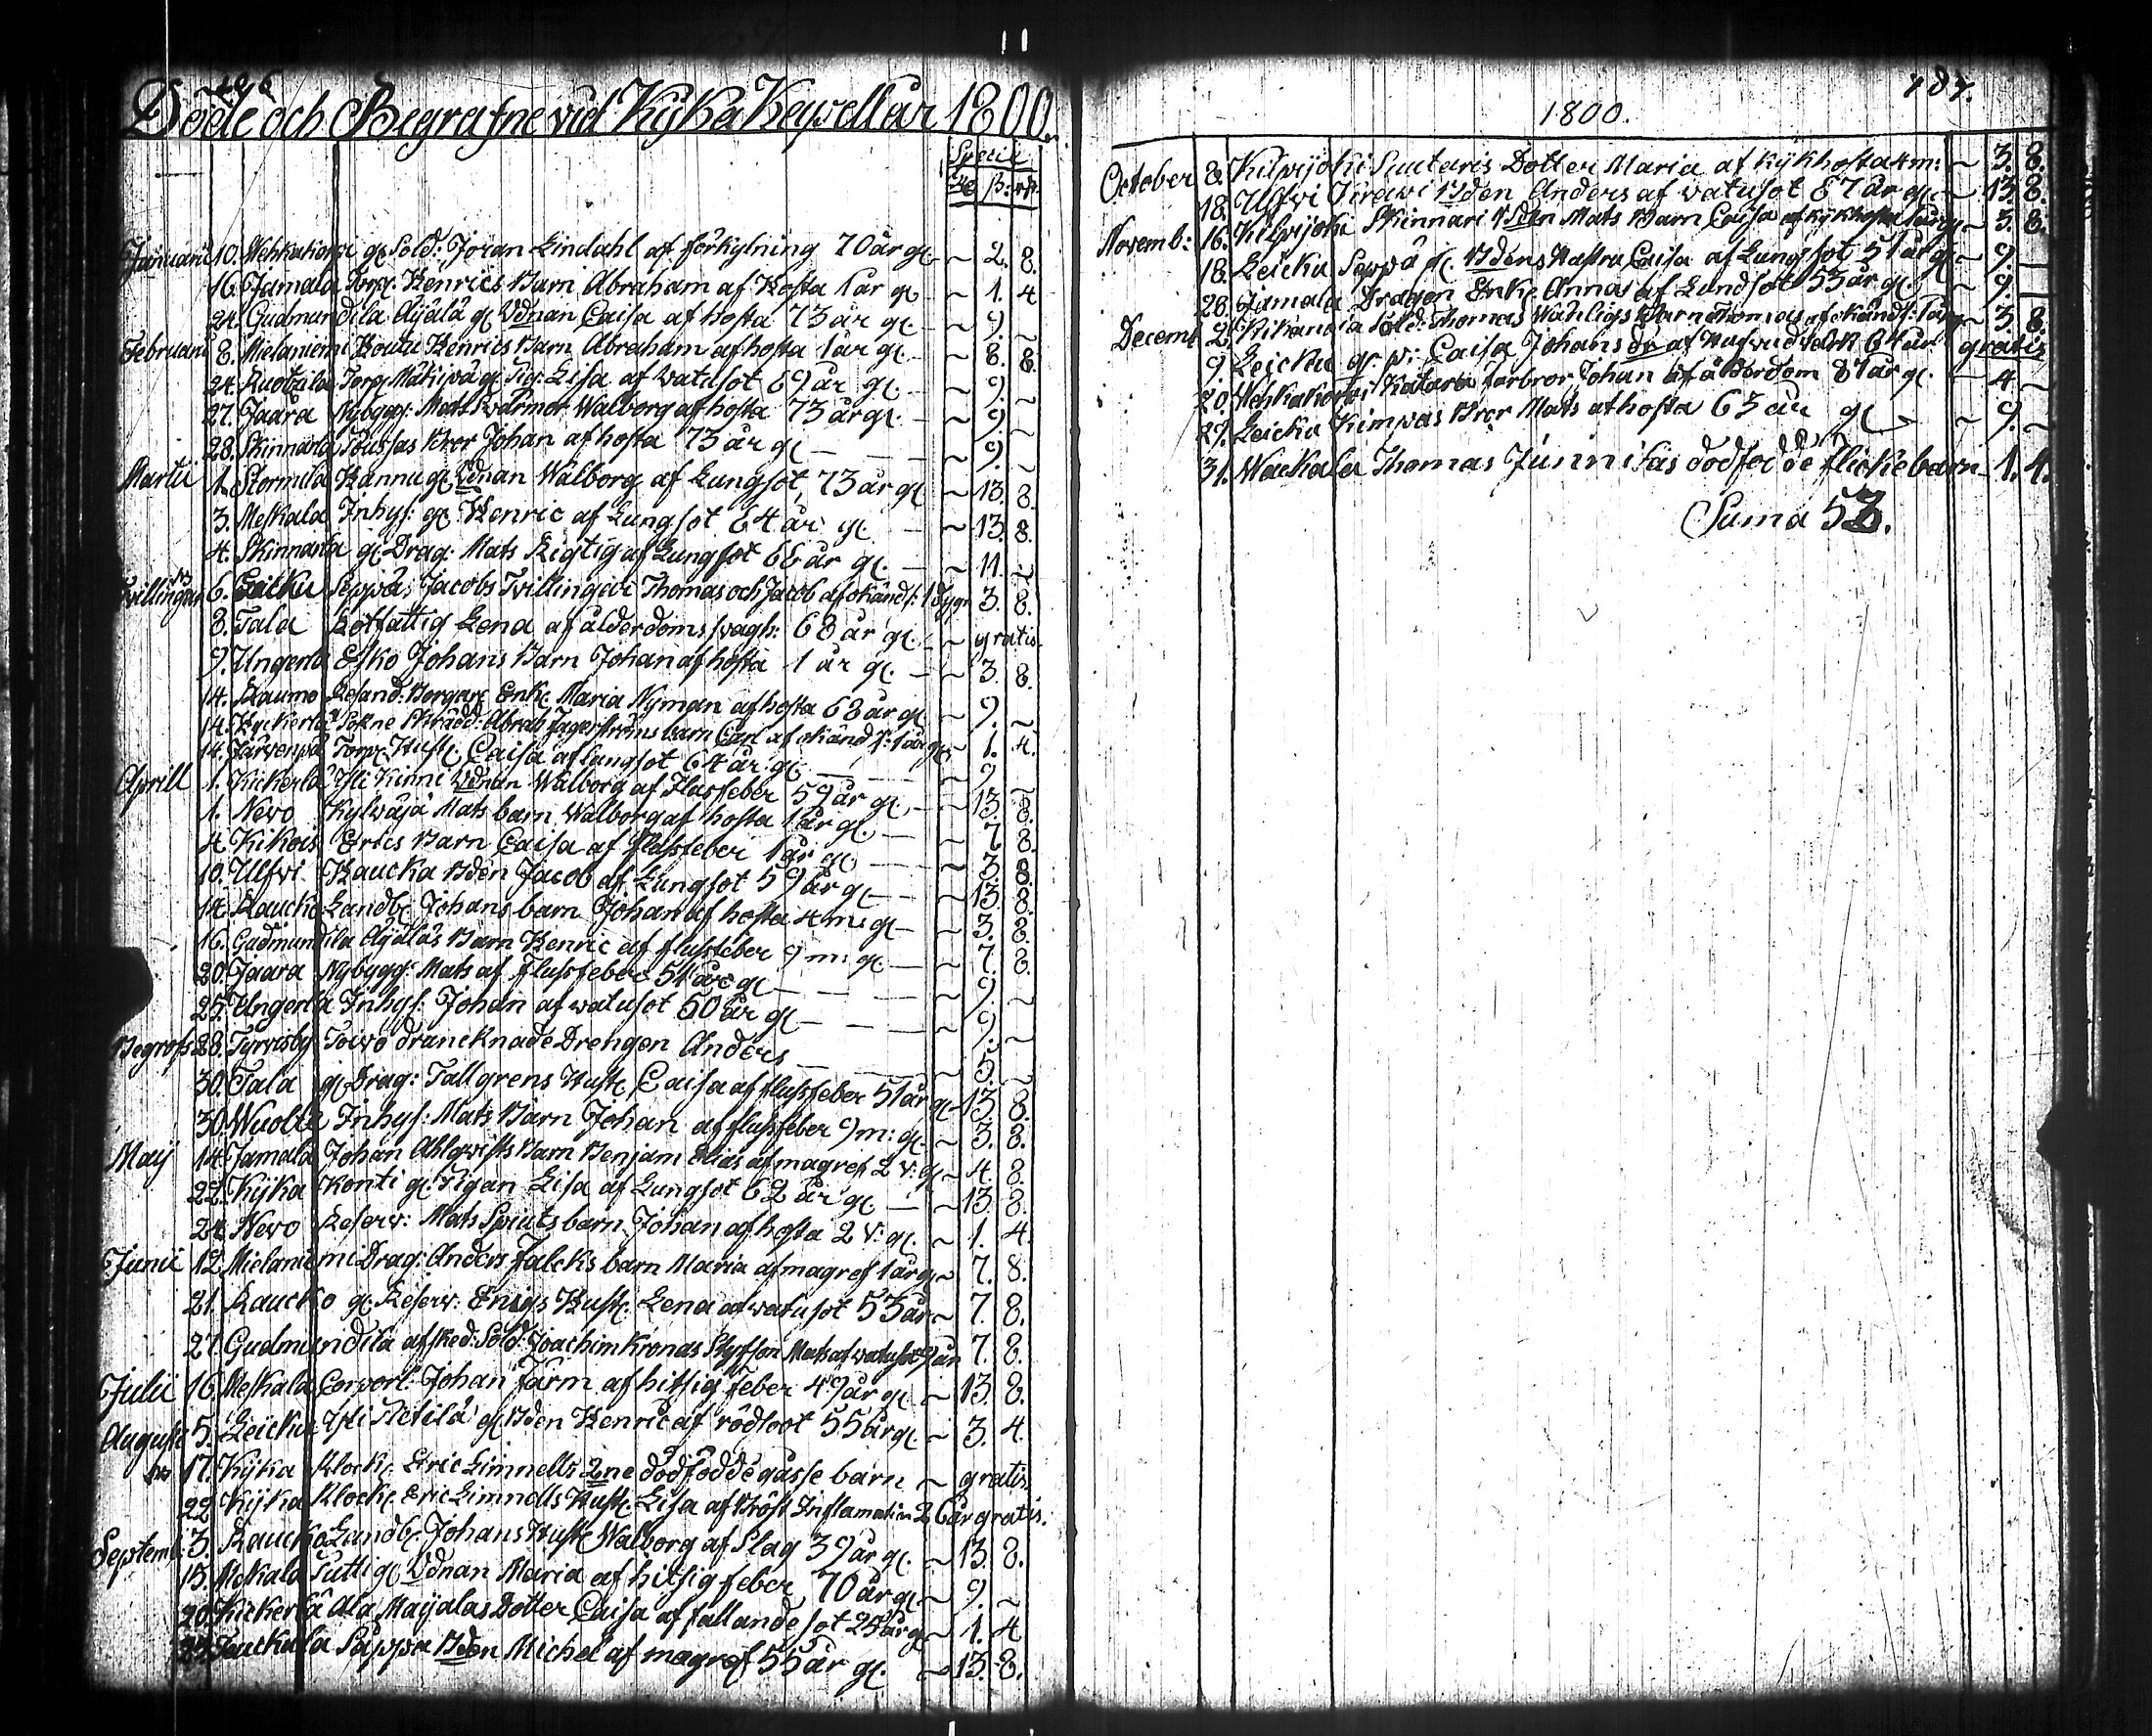 186
Döde och Begrafne vid Kyka Kapell år 1800.
Specie
Rd ß: rst.
Januarii 10. Wehkakorpi gl Sold: Jöran Lindahl af förkylning 70 år gl ~ 2. 8.
16. Jamala Torp. Henrics Barn Abraham af Hosta 1 år gl ~ 1. 4
24. Gudmundila Äijälä gl Vdnan Caisa af hosta 73 år gl. ~ 9. ~
Februarii 8. Mielaniemi Koutu Henrics Barn Abraham af hosta 1 år gl ~ 8. 8.
24. Ruotzila Torp. Mäkipä gl Pig. Lisa af watusot 69 år gl. ~ 9. ~
27. Jaara Nybygg: Mats Swärmor Walborg af hosta 73 år gl. ~ 9. ~
28. Skinnarla Pussas Bror Johan af hosta 73 år gl ~ 9. ~
Martii 1. Stormila Hannu gl Vdnan Walborg af Lungsot, 73 år gl ~ 13. 8
3. Meskala Inhys: gl. Henric af Lungsot 64 år gl ~ 13. 8.
4. Skinnarla gl Drag: Mats Rigtig af Lungsot 66 år gl. ~ 11. ~
Twillingar 6. Leicku Seppäs Jacobs Twillingar Thomas och Jacob af okänd s: 1 dygn 3. 8.
8. Tala Rotfattig Lena af ålderdoms swagh: 68 år gl. ~ gratis.
9. Ungerla Esko Johans Barn Johan af hosta 1 år gl. ~ 3. 8.
14. Raumo Resand: Borgare Enk. Maria Nyman af hosta 68 år gl ~ 9. ~
14. Kyckerlä Sokne Skrädd: Abrah Jagerströms barn Carl af okänd s: 1 år gl ~ 1. 4.
14. Järvenpä Torp. Hust. Caisa af lungsot 64 år gl ~ 9 ~
Aprill 1. Kickerlä Yli Kinni Vdnan Walborg af Flassfeber 59 år gl. ~ 13. 8.
1. Nevo Kylwäjä Mats barn Walborg af hosta 1 år gl. ~ 7 8.
4. Kikois Erics Barn Caisa af flussfeber 1 år gl ~ 3. 8.
10. Ulfvi Haucka Bden Jacob af Lungsot 59 år gl ~ 13. 8.
14. Raucko Landb. Johans barn Johan af hosta 4 m: gl ~ 3. 8.
16. Gudmundila Äijäläs Barn Henric af flussfeber 9 m: gl ~ 7. 8.
20. Jaara Nybygg: Mats af flussfeber 51 år gl ~ 9. ~
25. Ungerla Inhys: Johan af watusot 50 år gl ~ 9. ~
Begrofs 28. Tyrvisby Toivo drancknade Drengen Anders ~ 5. ~
30. Tala gl Drag: Tallgrens Hust. Caisa af flussfeber 51 år gl 13. 8.
30. Wuolle Inhys: Mats Barn Johan af flussfeber 9 m: gl. ~ 3. 8.
Maij 14. Jamala Johan Ahlqwists Barn Benjam Elias af magref 2 v: gl ~ 4. 8.
22. Kyka Konti gl. Pigan Lisa af Lungsot 62 år gl ~ 13. 8.
24. Nevo Reserv: Mats Spiuts barn Johan af hosta 2 v: gl. ~ 1. 4.
Junii 12. Mielaniemi Drag: Anders Falcks barn Maria af magref 1 år gl ~ 7. 8.
21. Raucko gl. Reserv: Enigs Hust. Lena af watusot 53 år ~ 7. 8.
27. Gudmundila afsked: Sold: Joachim Kronas Styfson Mats af watusot 9 år 7. 8.
Julii 16. Meskala Corporl: Johan Färm af hitsig feber 49 år gl ~ 13. 8.
Augusti 5. Leicku Yli Netilä gl Bden Henric af rödsoot 55 år gl. ~ 3. 4.
17. Kyka Klock. Eric Limnells 2ne dödfödde gåsse barn ~ gratis
22 Kyka Klock. Eric Limnells Hust. Lisa af Bröst Inflamation 26 år gratis.
Septemb: 3. Raucko Landb. Johans Hust. Walborg af Slag 39 år gl. ~ 13. 8.
13. Meskala Tutti gl Vdnan Maria af hitsig feber 70 år gl ~ 9. ~
20. Kickerlä Ala Maijalas Dotter Caisa af fallande sot 25 år gl ~ 1. 4
Sappa Bden Michel af magref 55 år gl. ~ 13. 8.
187.
1800.
October 8. Kilpijoki Suutaris Dotter Maria af kykhosta 4 m: ~ 3. 8.
18. Ulfvi Bden Anders af watusot 87 år gl. ~ 13. 8.
Novemb: 16. Kilpijoki Skinnari Bden Mats Barn Caisa af kykhosta 1 år gl ~ 3. 8.
18. Leicku Seppä gl. Bdens Hustru Caisa af Lungsot 51 år gl ~ 9. ~
28. Jamala Dragon Enke Anna af Lundsot 55 år gl. ~ 9.
Decemb 2. Kikanoia Sold: Thomas Wähligs Barn Thomas af okänd s: 1 år ~ 3. 8.
9. Leicku gl. p: Caisa Johans dr af Hufvudvärk 64 år gratis
20. Wehkakorpi Katara farbror Johan af ålderdom 81 år gl. ~ 4. ~
29. Leicku Kimpas Bror Mats af hosta 63 år gl ~ 9. ~
31. Wackala Thomas Junnilas dödfödde flickebarn 1. 4.
Suma 53.